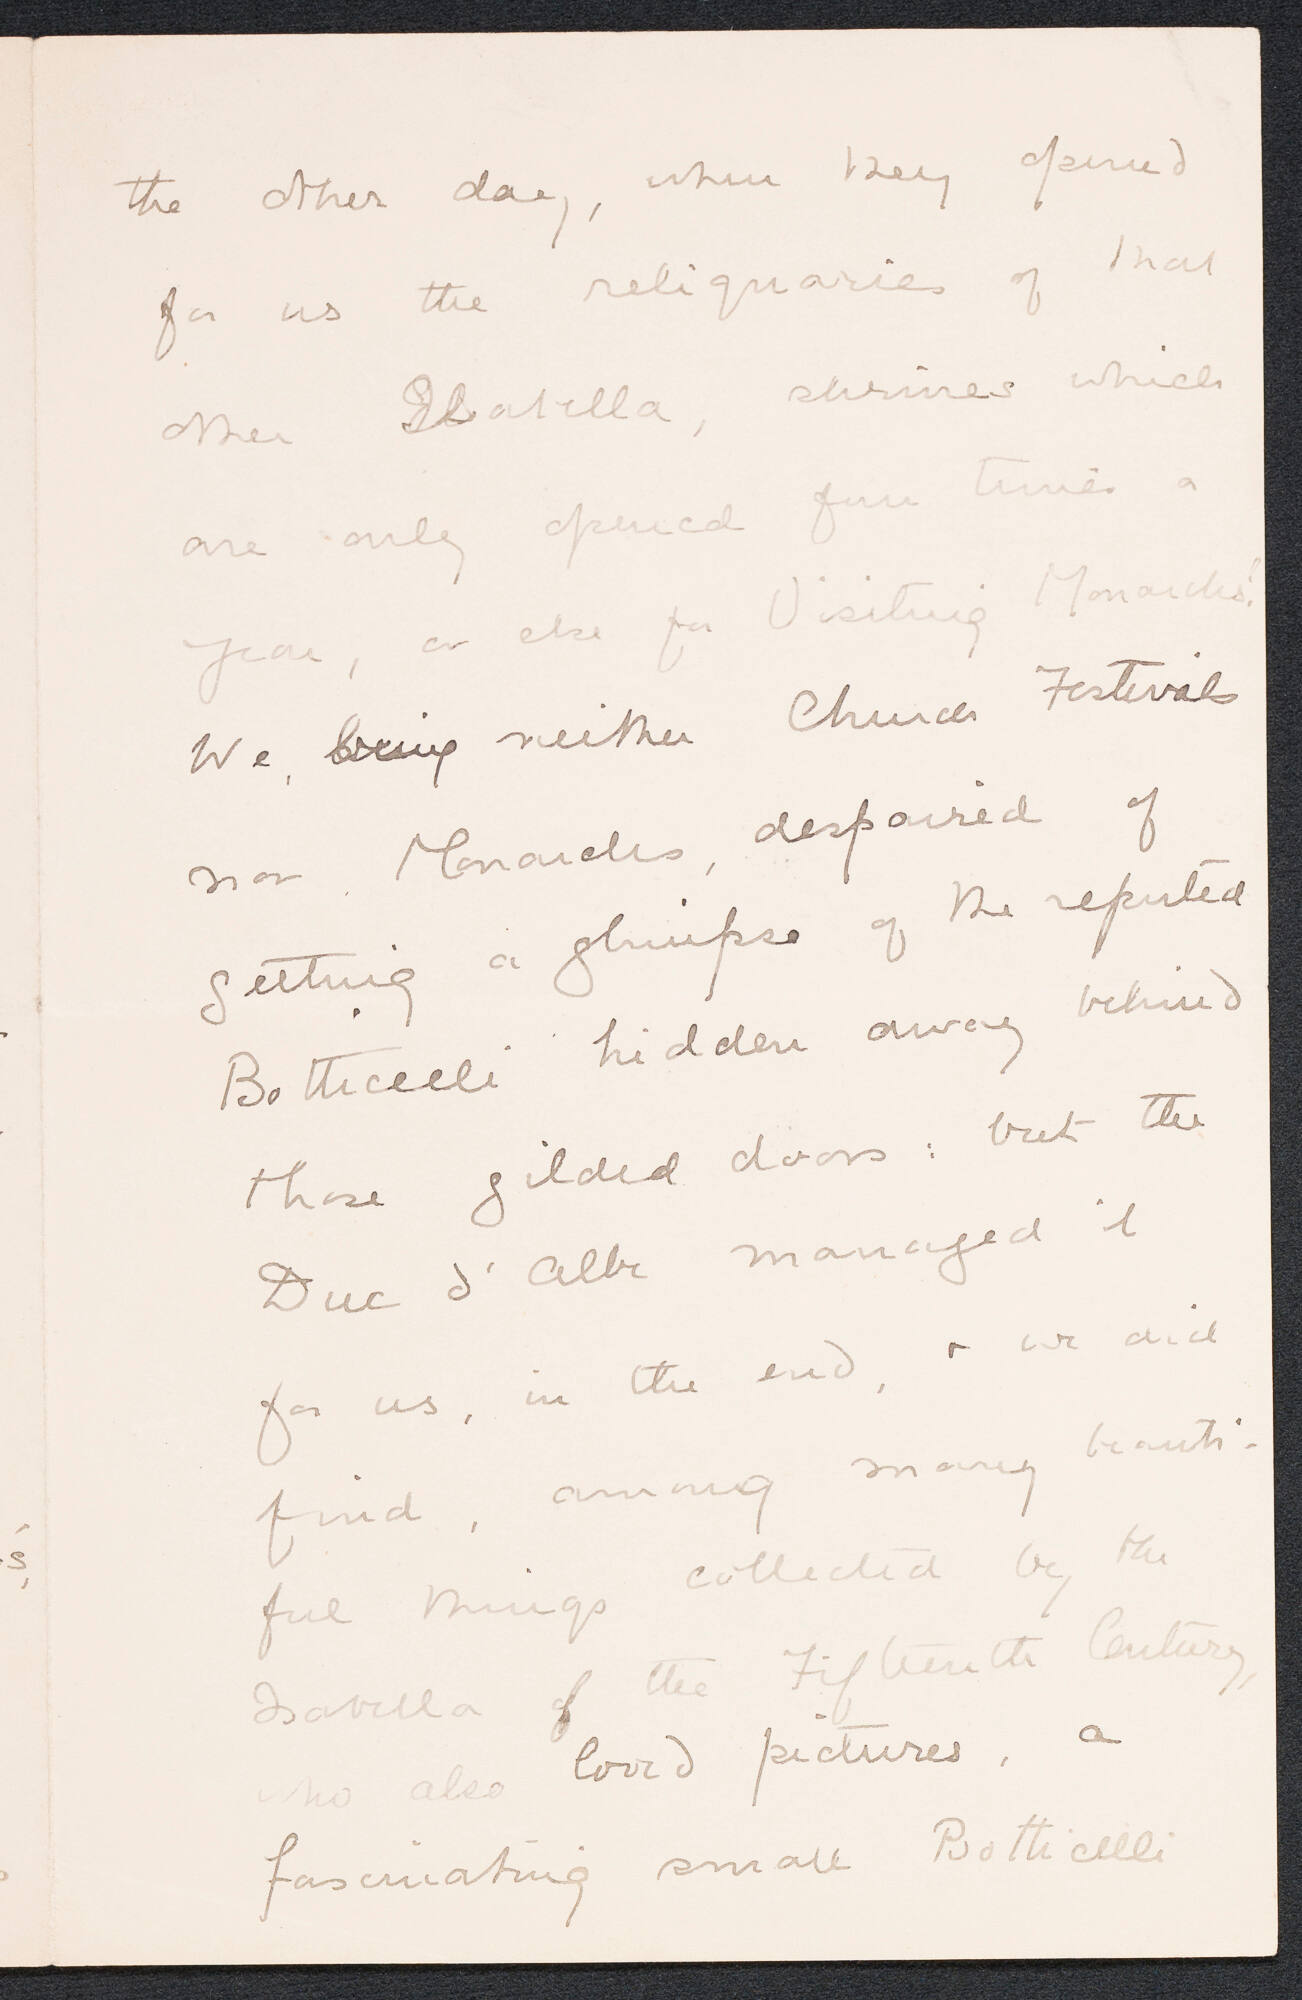 the other day, when they opened
for us the reliquaries of that
other Isabella, shrines which
are only opened four times a
year, or else for Visiting Monarchs!
We, being neither Church Festivals
nor Monarchs, despaired of
getting a glimpse of the reputed
Botticelli hidden away behind
those gilded doors: but the
Duc d'Albe managed it
for us, in the end, + we did
find, among many beauti-
ful things collected by the
Isabella of the Fifteenth Century,
who also loved pictures, a
fascinating small Botticelli